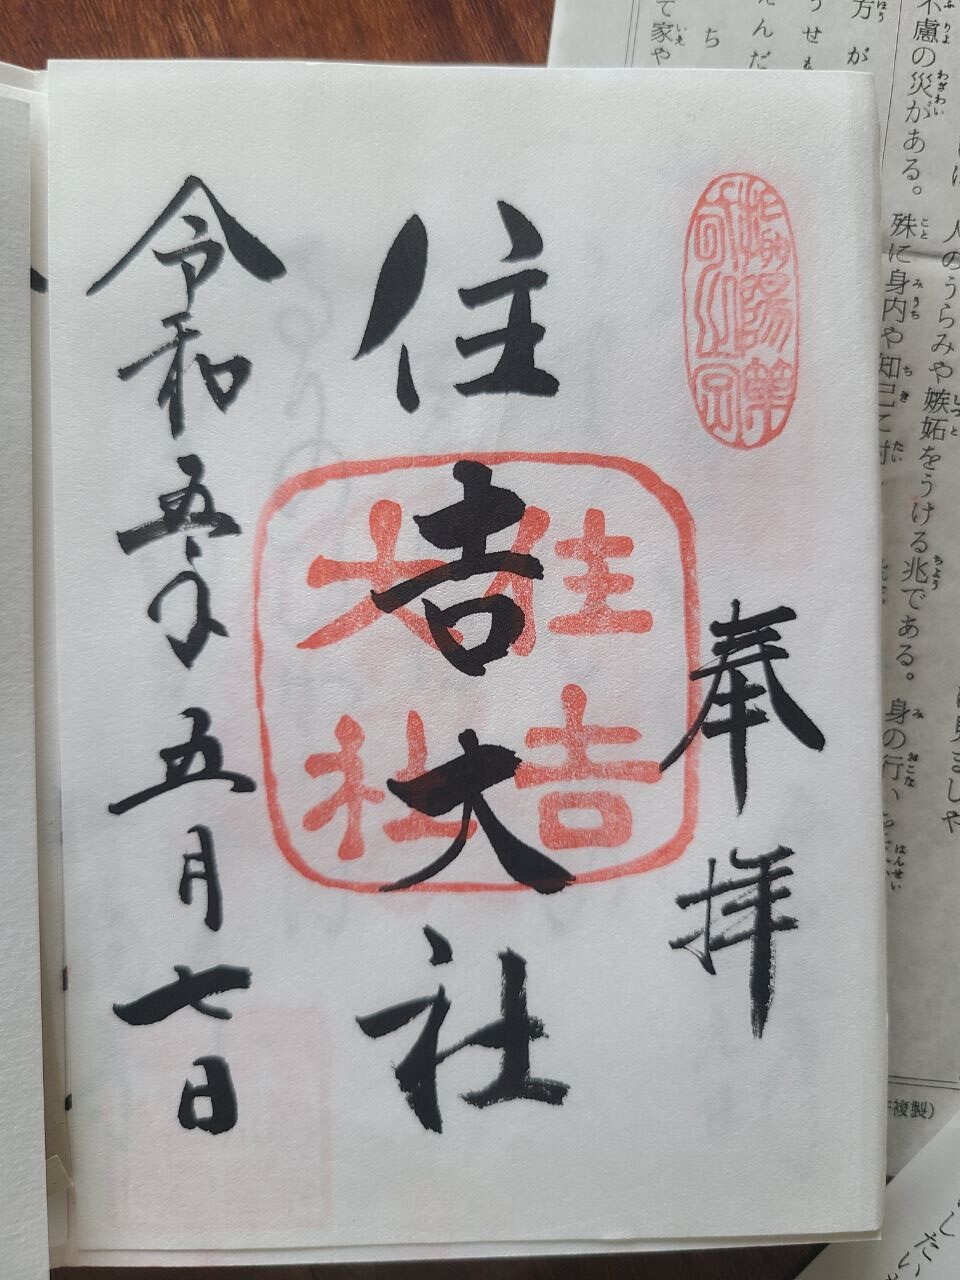 奉拝
住吉大社
令和五年五月七日
住吉
大社
人のうらみや嫉妬をうける兆である。身の行い、
不慮の災がある。殊に身内や知己に対
方が
て家や
複製)
したい